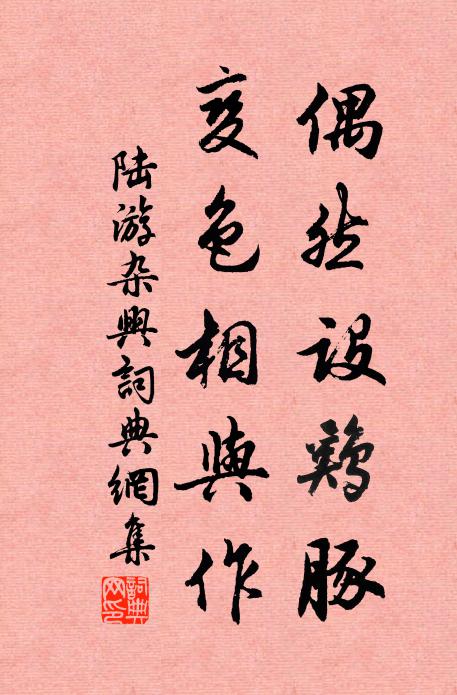 偶然设鸡豚
变色相与作
陆游杂兴词典网集
词典网印